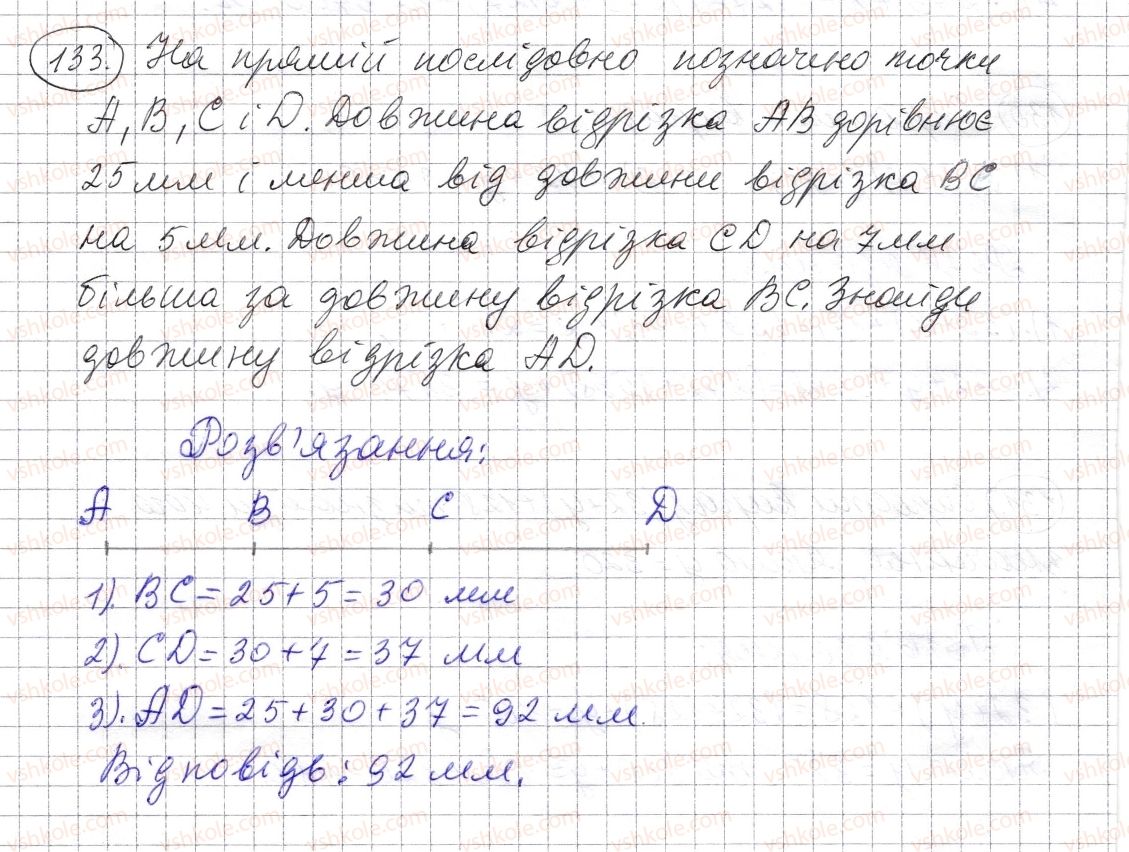 133. На прямій послідовно позначено точки
A, B, C і D. Довжина відрізка AB дорівнює
25 мм і менша від довжини відрізка BC
на 5 мм. Довжина відрізка CD на 7 мм
більша за довжину відрізка BC. Знайди
довжину відрізка AD.
Розв'язання:
A B C D
1). BC = 25 + 5 = 30 мм
2). CD = 30 + 7 = 37 мм
3). AD = 25 + 30 + 37 = 92 мм.
Відповідь: 92 мм.
vshkole.com